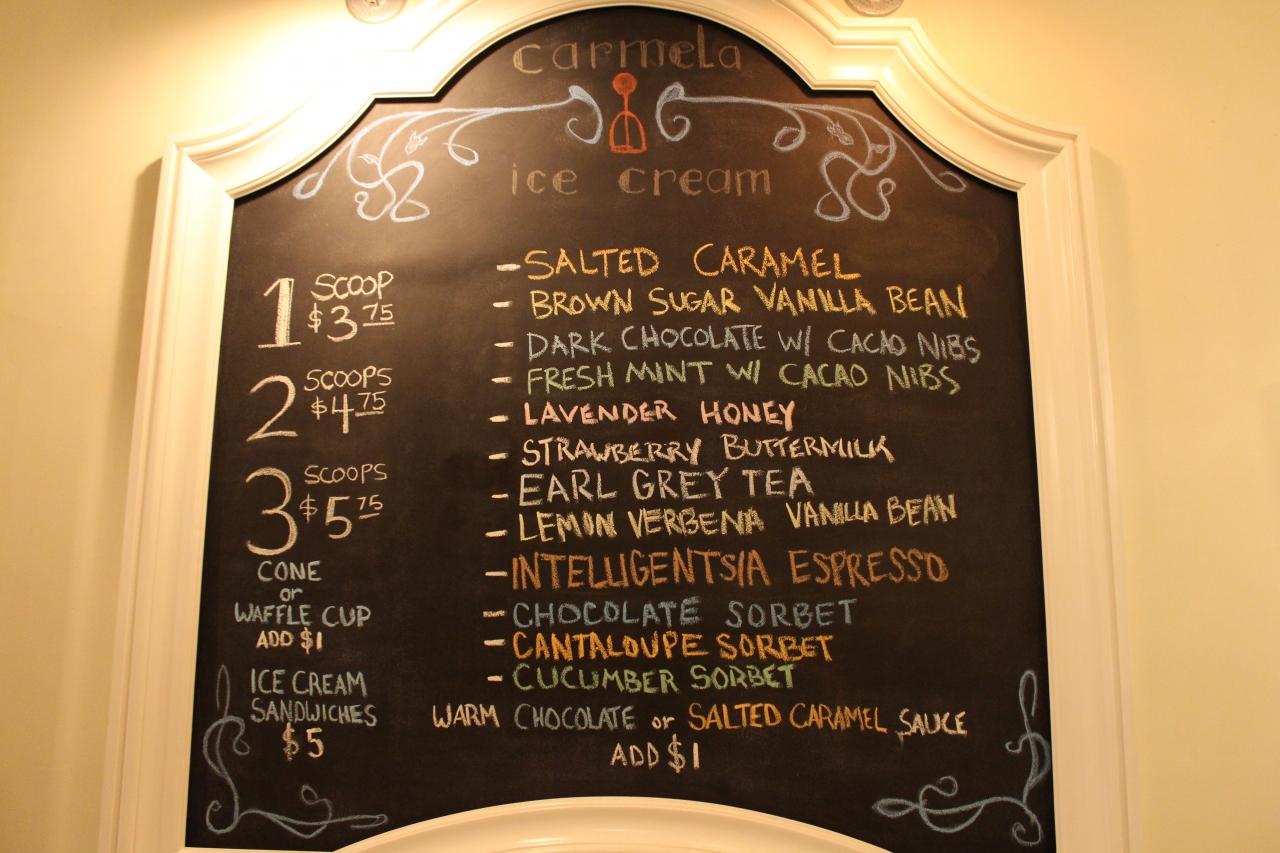 carmela
ice cream
1 SCOOP
$3.75
2 SCOOPS
$4.75
3 SCOOPS
$5.75
CONE
or
WAFFLE CUP
ADD $1
ICE CREAM
SANDWICHES
$5
- SALTED CARAMEL
- BROWN SUGAR VANILLA BEAN
- DARK CHOCOLATE W/ CACAO NIBS
- FRESH MINT W/ CACAO NIBS
- LAVENDER HONEY
- STRAWBERRY BUTTERMILK
- EARL GREY TEA
- LEMON VERBENA VANILLA BEAN
- INTELLIGENTSIA ESPRESSO
- CHOCOLATE SORBET
- CANTALOUPE SORBET
- CUCUMBER SORBET
WARM CHOCOLATE or SALTED CARAMEL SAUCE
ADD $1